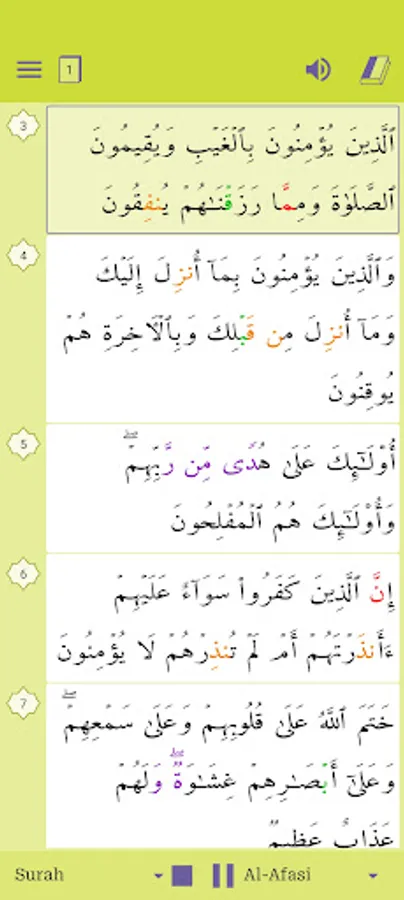 1
3
ٱلَّذِينَ يُؤۡمِنُونَ بِٱلۡغَيۡبِ وَيُقِيمُونَ
ٱلصَّلَوٰةَ وَمِمَّا رَزَقۡنَٰهُمۡ يُنفِقُونَ
4
وَٱلَّذِينَ يُؤۡمِنُونَ بِمَآ أُنزِلَ إِلَيۡكَ
وَمَآ أُنزِلَ مِن قَبۡلِكَ وَبِٱلۡأٓخِرَةِ هُمۡ
يُوقِنُونَ
5
أُوْلَٰٓئِكَ عَلَىٰ هُدٗى مِّن رَّبِّهِمۡۖ
وَأُوْلَٰٓئِكَ هُمُ ٱلۡمُفۡلِحُونَ
6
إِنَّ ٱلَّذِينَ كَفَرُواْ سَوَآءٌ عَلَيۡهِمۡ
ءَأَنذَرۡتَهُمۡ أَمۡ لَمۡ تُنذِرۡهُمۡ لَا يُؤۡمِنُونَ
7
خَتَمَ ٱللَّهُ عَلَىٰ قُلُوبِهِمۡ وَعَلَىٰ سَمۡعِهِمۡۖ
وَعَلَىٰٓ أَبۡصَٰرِهِمۡ غِشَٰوَةٞۖ وَلَهُمۡ
عَذَابٌ عَظِيمٞ
Surah
Al-Afasi